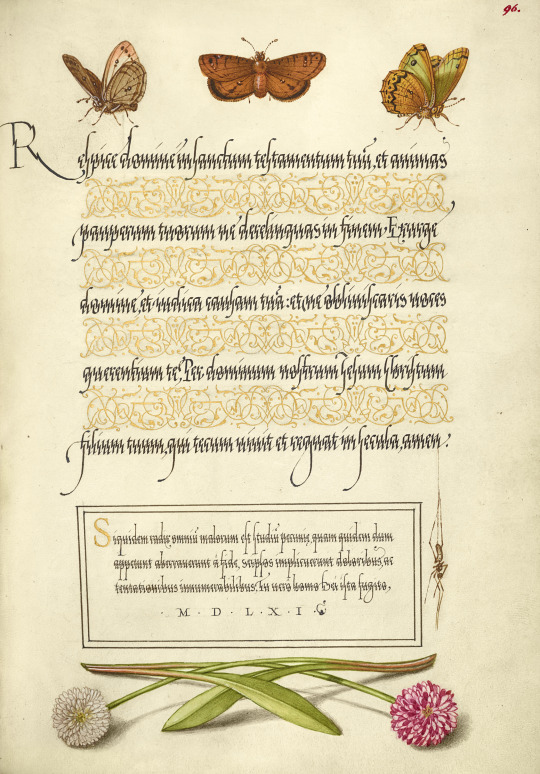 96.
Respice domine in sanctum testamentum tuũ, et animas
pauperum tuorum ne derelinquas in finem. Exurge
domine, et iudica causam tuã: et ne obliuiscaris uoces
querentium te. Per dominum nostrum Jesum Christum
filium tuum, qui tecum uiuit et regnat in secula, amen.
Siquidem radix omniũ malorum est studiũ pecunię, quam quidem dum
appetunt aberrauerunt à fide, seipsos implicuerunt doloribus, ac
tentationibus innumerabilibus. Tu uerò homo Dei ista fugito,
· M · D · L · X · I ·